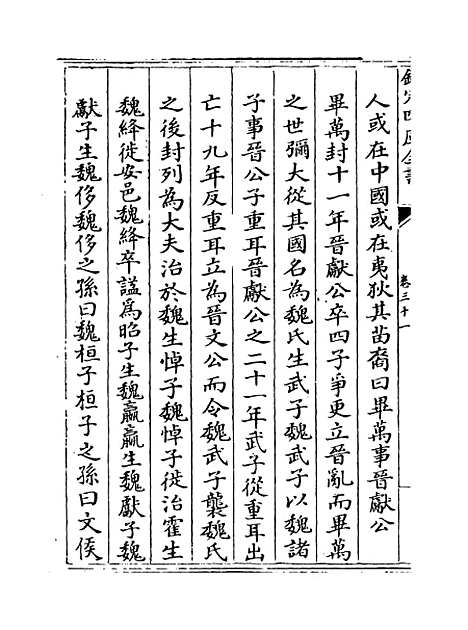 欽定四庫全書
卷三十一
人或在中國或在夷狄其苗裔曰畢萬事晉獻公
畢萬封十一年晉獻公卒四子爭更立晉亂而畢萬
之世彌大從其國名為魏氏生武子魏武子以魏諸
子事晉公子重耳晉獻公之二十一年武子從重耳出
亡十九年反重耳立為晉文公而令魏武子襲魏氏
之後封列為大夫治於魏生悼子魏悼子徙治霍生
魏絳徙安邑魏絳卒謚為昭子生魏嬴嬴生魏獻子魏
獻子生魏侈魏侈之孫曰魏桓子桓子之孫曰文侯